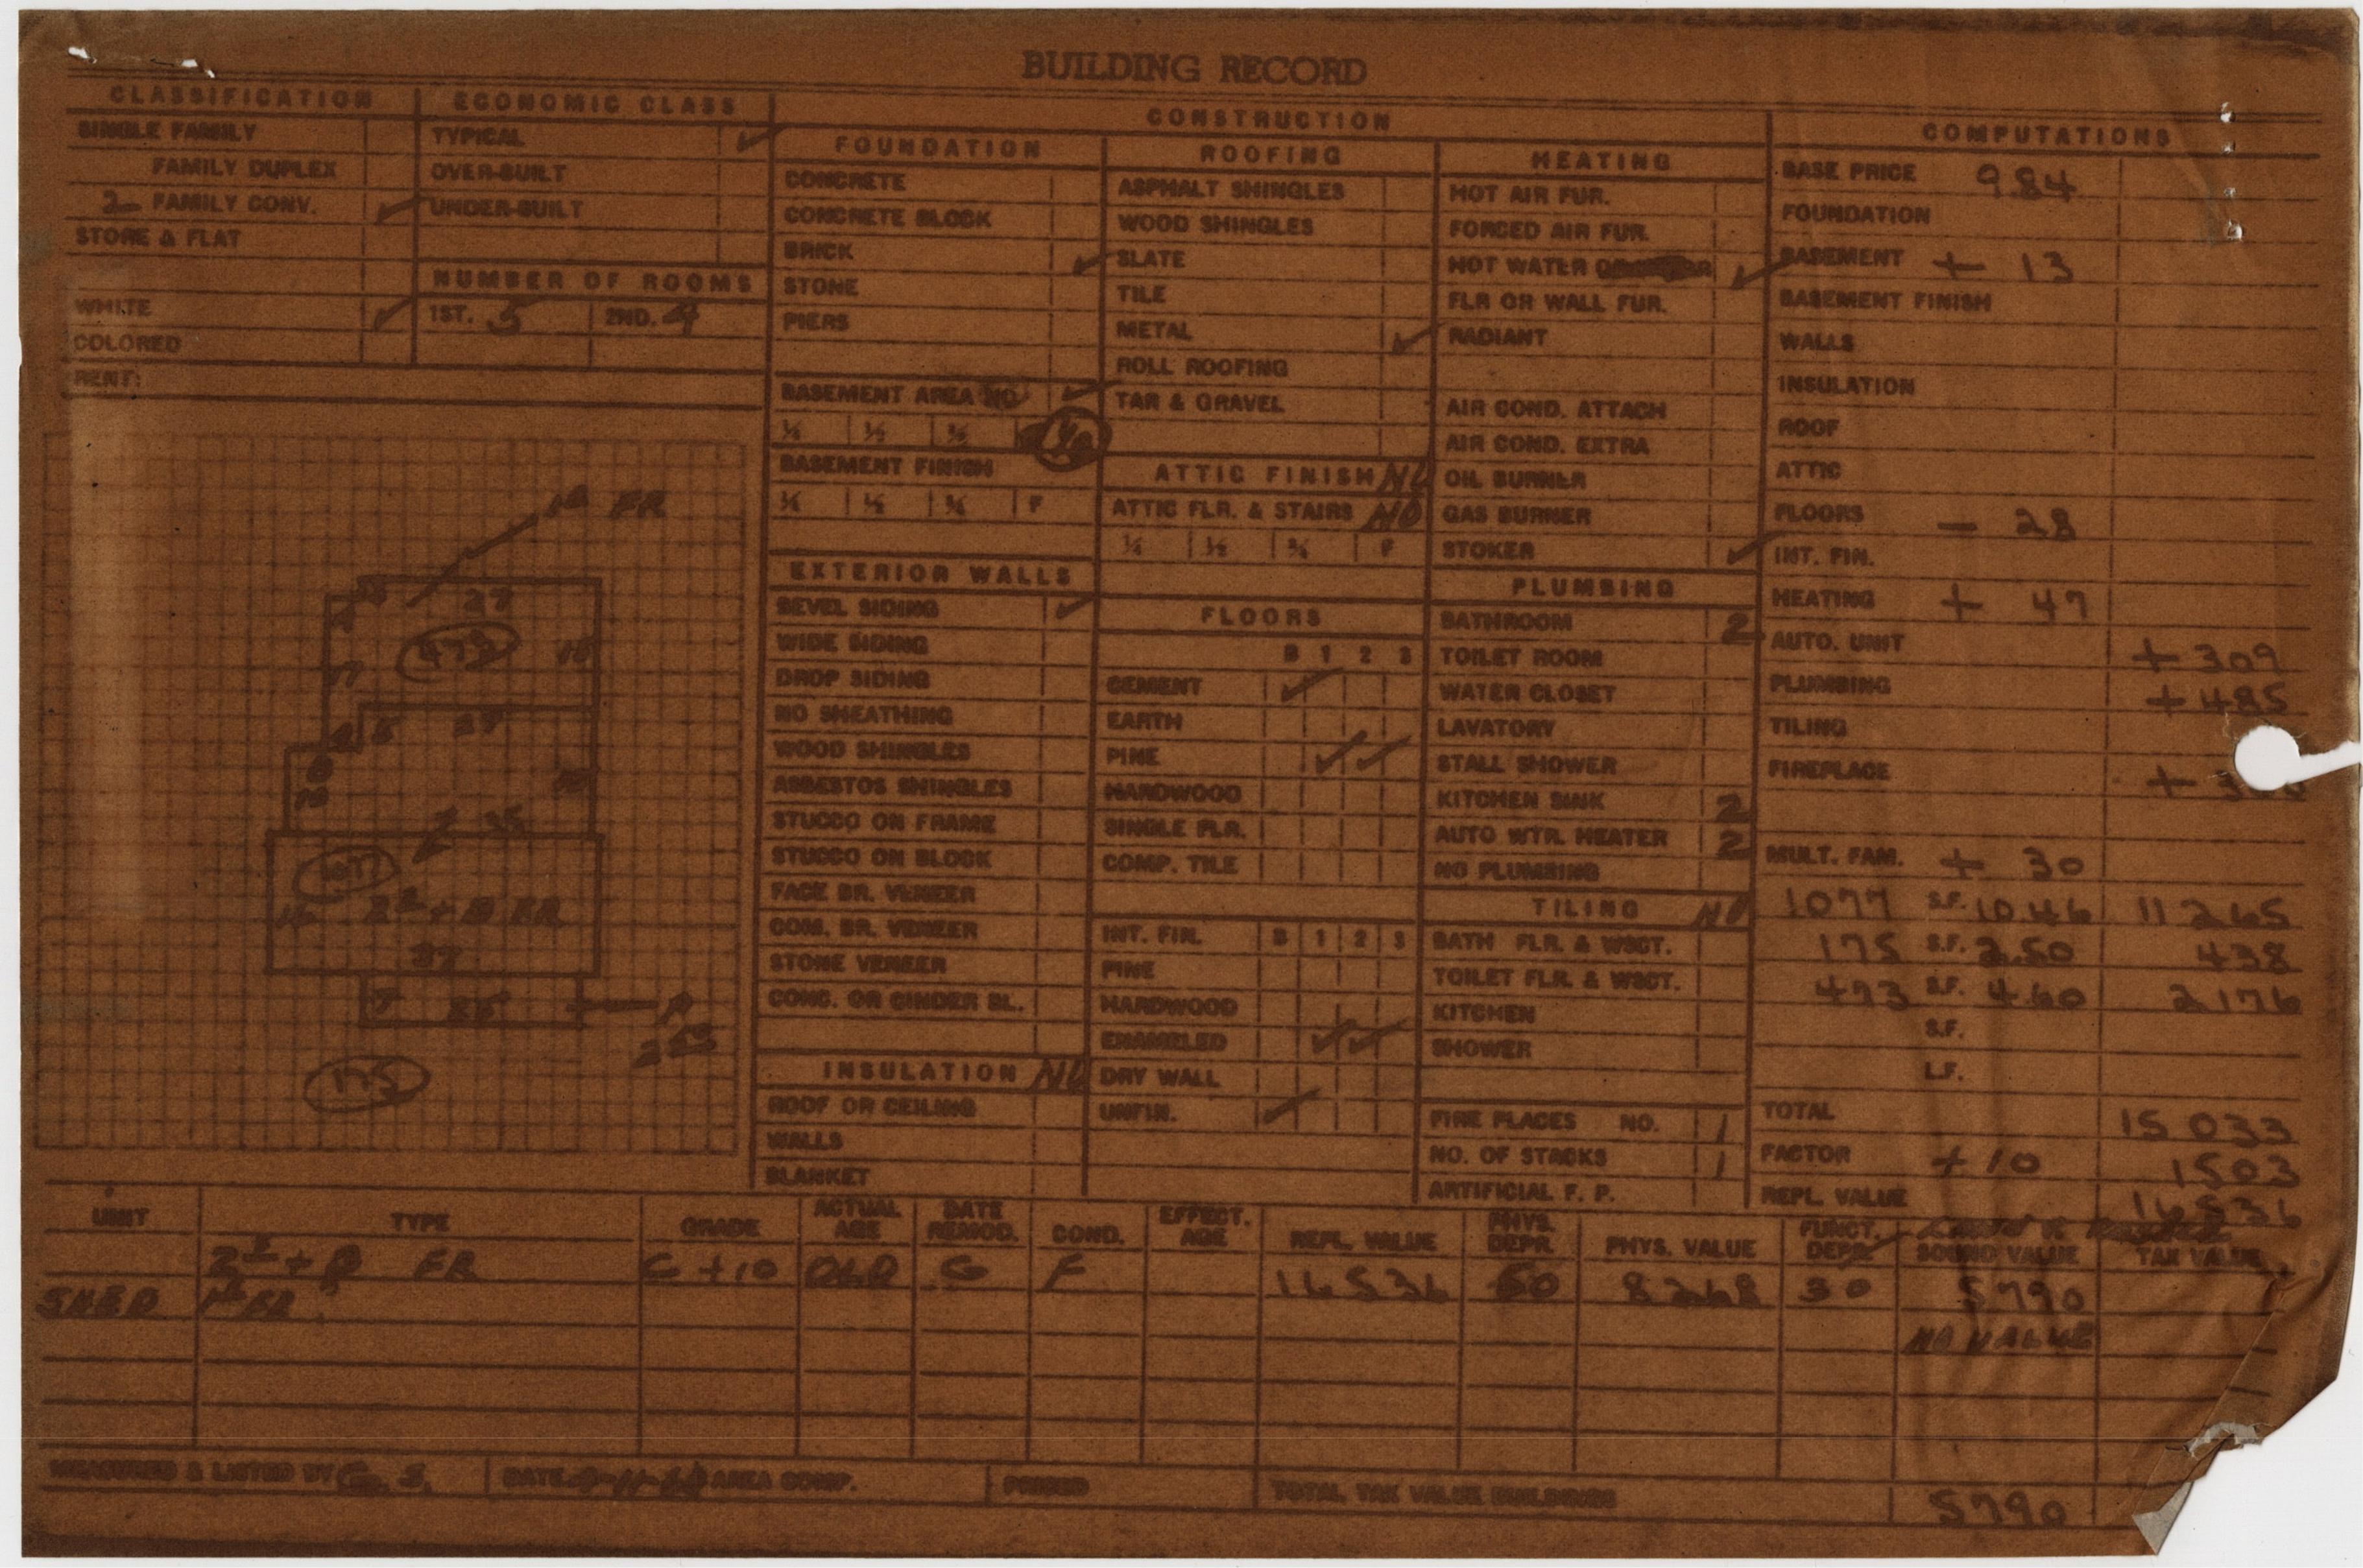 BUILDING RECORD
CLASSIFICATION
SINGLE FAMILY
FAMILY DUPLEX
2 FAMILY CONV. ✓
STORE & FLAT
WHITE ✓
COLORED
RENT:
ECONOMIC CLASS
TYPICAL ✓
OVER-BUILT
UNDER-BUILT
NUMBER OF ROOMS
1ST. 5 2ND. 4
1S FR
27
473
18
17
5 27
10
35
1077
16
37
7 25 P
175
CONSTRUCTION
FOUNDATION
CONCRETE
CONCRETE BLOCK
BRICK ✓
STONE
PIERS
BASEMENT AREA NO ✓
¼ ½ ¾
BASEMENT FINISH
¼ ½ ¾ F
EXTERIOR WALLS
BEVEL SIDING ✓
WIDE SIDING
DROP SIDING
NO SHEATHING
WOOD SHINGLES
ASBESTOS SHINGLES
STUCCO ON FRAME
STUCCO ON BLOCK
FACE BR. VENEER
COM. BR. VENEER
STONE VENEER
CONC. OR CINDER BL.
INSULATION NO
ROOF OR CEILING
WALLS
BLANKET
ROOFING
ASPHALT SHINGLES
WOOD SHINGLES
SLATE
TILE
METAL ✓
ROLL ROOFING
TAR & GRAVEL
ATTIC FINISH NO
ATTIC FLR. & STAIRS NO
¼ ½ ¾ F
FLOORS
B 1 2 3
CEMENT ✓
EARTH
PINE ✓ ✓
HARDWOOD
SINGLE FLR.
COMP. TILE
INT. FIN. B 1 2 3
PINE
HARDWOOD
ENAMELED ✓ ✓
DRY WALL
UNFIN. ✓
HEATING
HOT AIR FUR.
FORCED AIR FUR.
HOT WATER ✓
FLR OR WALL FUR.
RADIANT
AIR COND. ATTACH
AIR COND. EXTRA
OIL BURNER
GAS BURNER
STOKER ✓
PLUMBING
BATHROOM 2
TOILET ROOM
WATER CLOSET
LAVATORY
STALL SHOWER
KITCHEN SINK 2
AUTO WTR. HEATER 2
NO PLUMBING
TILING NO
BATH FLR. & WSCT.
TOILET FLR. & WSCT.
KITCHEN
SHOWER
FIRE PLACES NO. 1
NO. OF STACKS 1
ARTIFICIAL F. P.
COMPUTATIONS
BASE PRICE 984
FOUNDATION
BASEMENT + 13
BASEMENT FINISH
WALLS
INSULATION
ROOF
ATTIC
FLOORS - 28
INT. FIN.
HEATING + 47
AUTO. UNIT + 309
PLUMBING + 485
TILING
FIREPLACE +
MULT. FAM. + 30
1077 S.F. 10.46 11265
175 S.F. 2.50 438
473 S.F. 4.60 2176
S.F.
L.F.
TOTAL 15033
FACTOR +10 1503
REPL. VALUE 16536
UNIT TYPE GRADE ACTUAL AGE DATE REMOD. COND. EFFECT. AGE REPL. VALUE PHYS. DEPR. PHYS. VALUE FUNCT. DEPR. SOUND VALUE TAX VALUE
2S + P FR C +10 OLD G F 16536 50 8268 30 5790
SHED 1S FR NO VALUE
MEASURED & LISTED BY G. S. DATE AREA COMP. PRICED TOTAL TAX VALUE BUILDINGS 5790